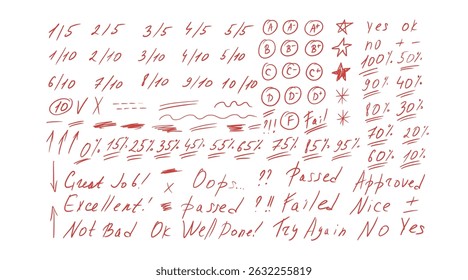 1/5 2/5 3/5 4/5 5/5 A A- A+ yes ok
1/10 2/10 3/10 4/10 5/10 B B- B+ no + -
6/10 7/10 8/10 9/10 10/10 C C- C+ 100% 50%
10 V X D D- D+ 90% 40%
!!! F Fail 80% 30%
0% 15% 25% 35% 45% 55% 65% 75% 85% 95% 70% 20%
60% 10%
Great Job! x Oops... ?? Passed Approved
Excellent! passed ?!! Failed Nice ±
Not Bad Ok Well Done! Try Again No Yes
shutterstock
IMAGE ID: 2632255819
www.shutterstock.com